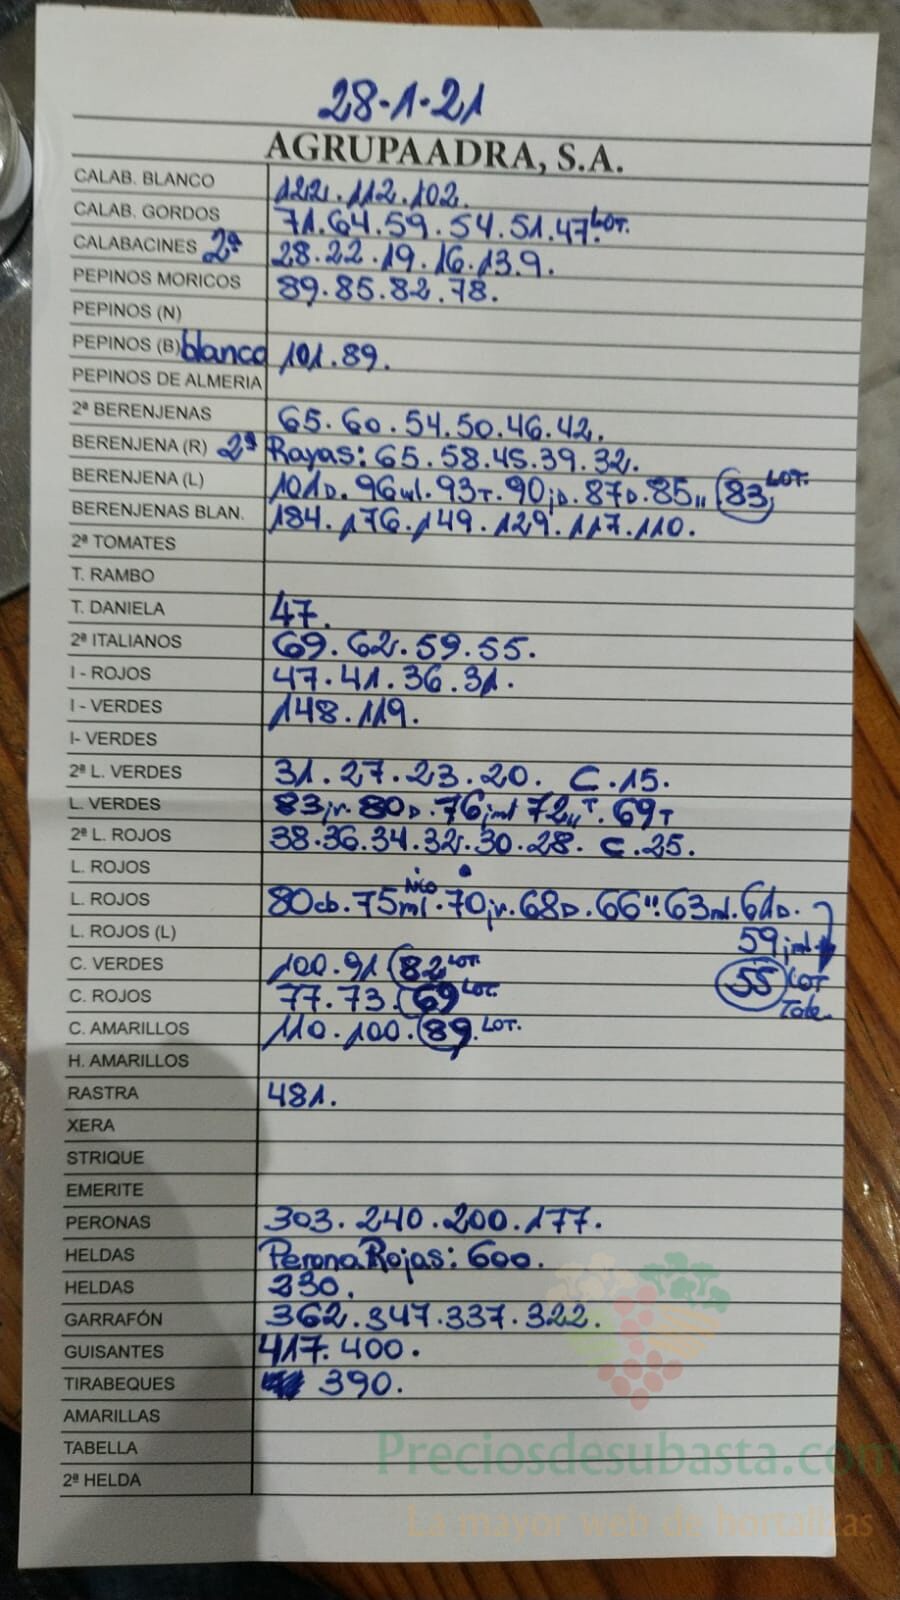 28-1-21
AGRUPAADRA, S.A.
CALAB. BLANCO 122.112.102.
CALAB. GORDOS 71.64.59.54.51.47.LOT.
CALABACINES 2ª 28.22.19.16.13.9.
PEPINOS MORICOS 89.85.82.78.
PEPINOS (N)
PEPINOS (B) blanco 101.89.
PEPINOS DE ALMERIA
2ª BERENJENAS 65.60.54.50.46.42.
BERENJENA (R) 2ª Rayas: 65.58.45.39.32.
BERENJENA (L) 101D. 96ml. 93T. 90jD. 87D. 85,, 83 LOT.
BERENJENAS BLAN. 184.176.149.129.117.110.
2ª TOMATES
T. RAMBO
T. DANIELA 47.
2ª ITALIANOS 69.62.59.55.
I - ROJOS 47.41.36.31.
I - VERDES 148.119.
I- VERDES
2ª L. VERDES 31.27.23.20. C.15.
L. VERDES 83jr. 80D. 76jml 72,,T. 69T
2ª L. ROJOS 38.36.34.32.30.28. C.25.
L. ROJOS
L. ROJOS 80cb. 75ml. 70jr. 68D. 66". 63ml. 61D.
L. ROJOS (L) 59jml
C. VERDES 100.91 82 LOT. 55 LOT
C. ROJOS 77.73. 69 LOT.
C. AMARILLOS 110.100. 89. LOT.
H. AMARILLOS
RASTRA 481.
XERA
STRIQUE
EMERITE
PERONAS 303.240.200.177.
HELDAS Perona Rojas: 600.
HELDAS 230.
GARRAFÓN 362.347.337.322.
GUISANTES 417.400.
TIRABEQUES 390.
AMARILLAS
TABELLA
2ª HELDA
Preciosdesubasta.com
La mayor web de hortalizas